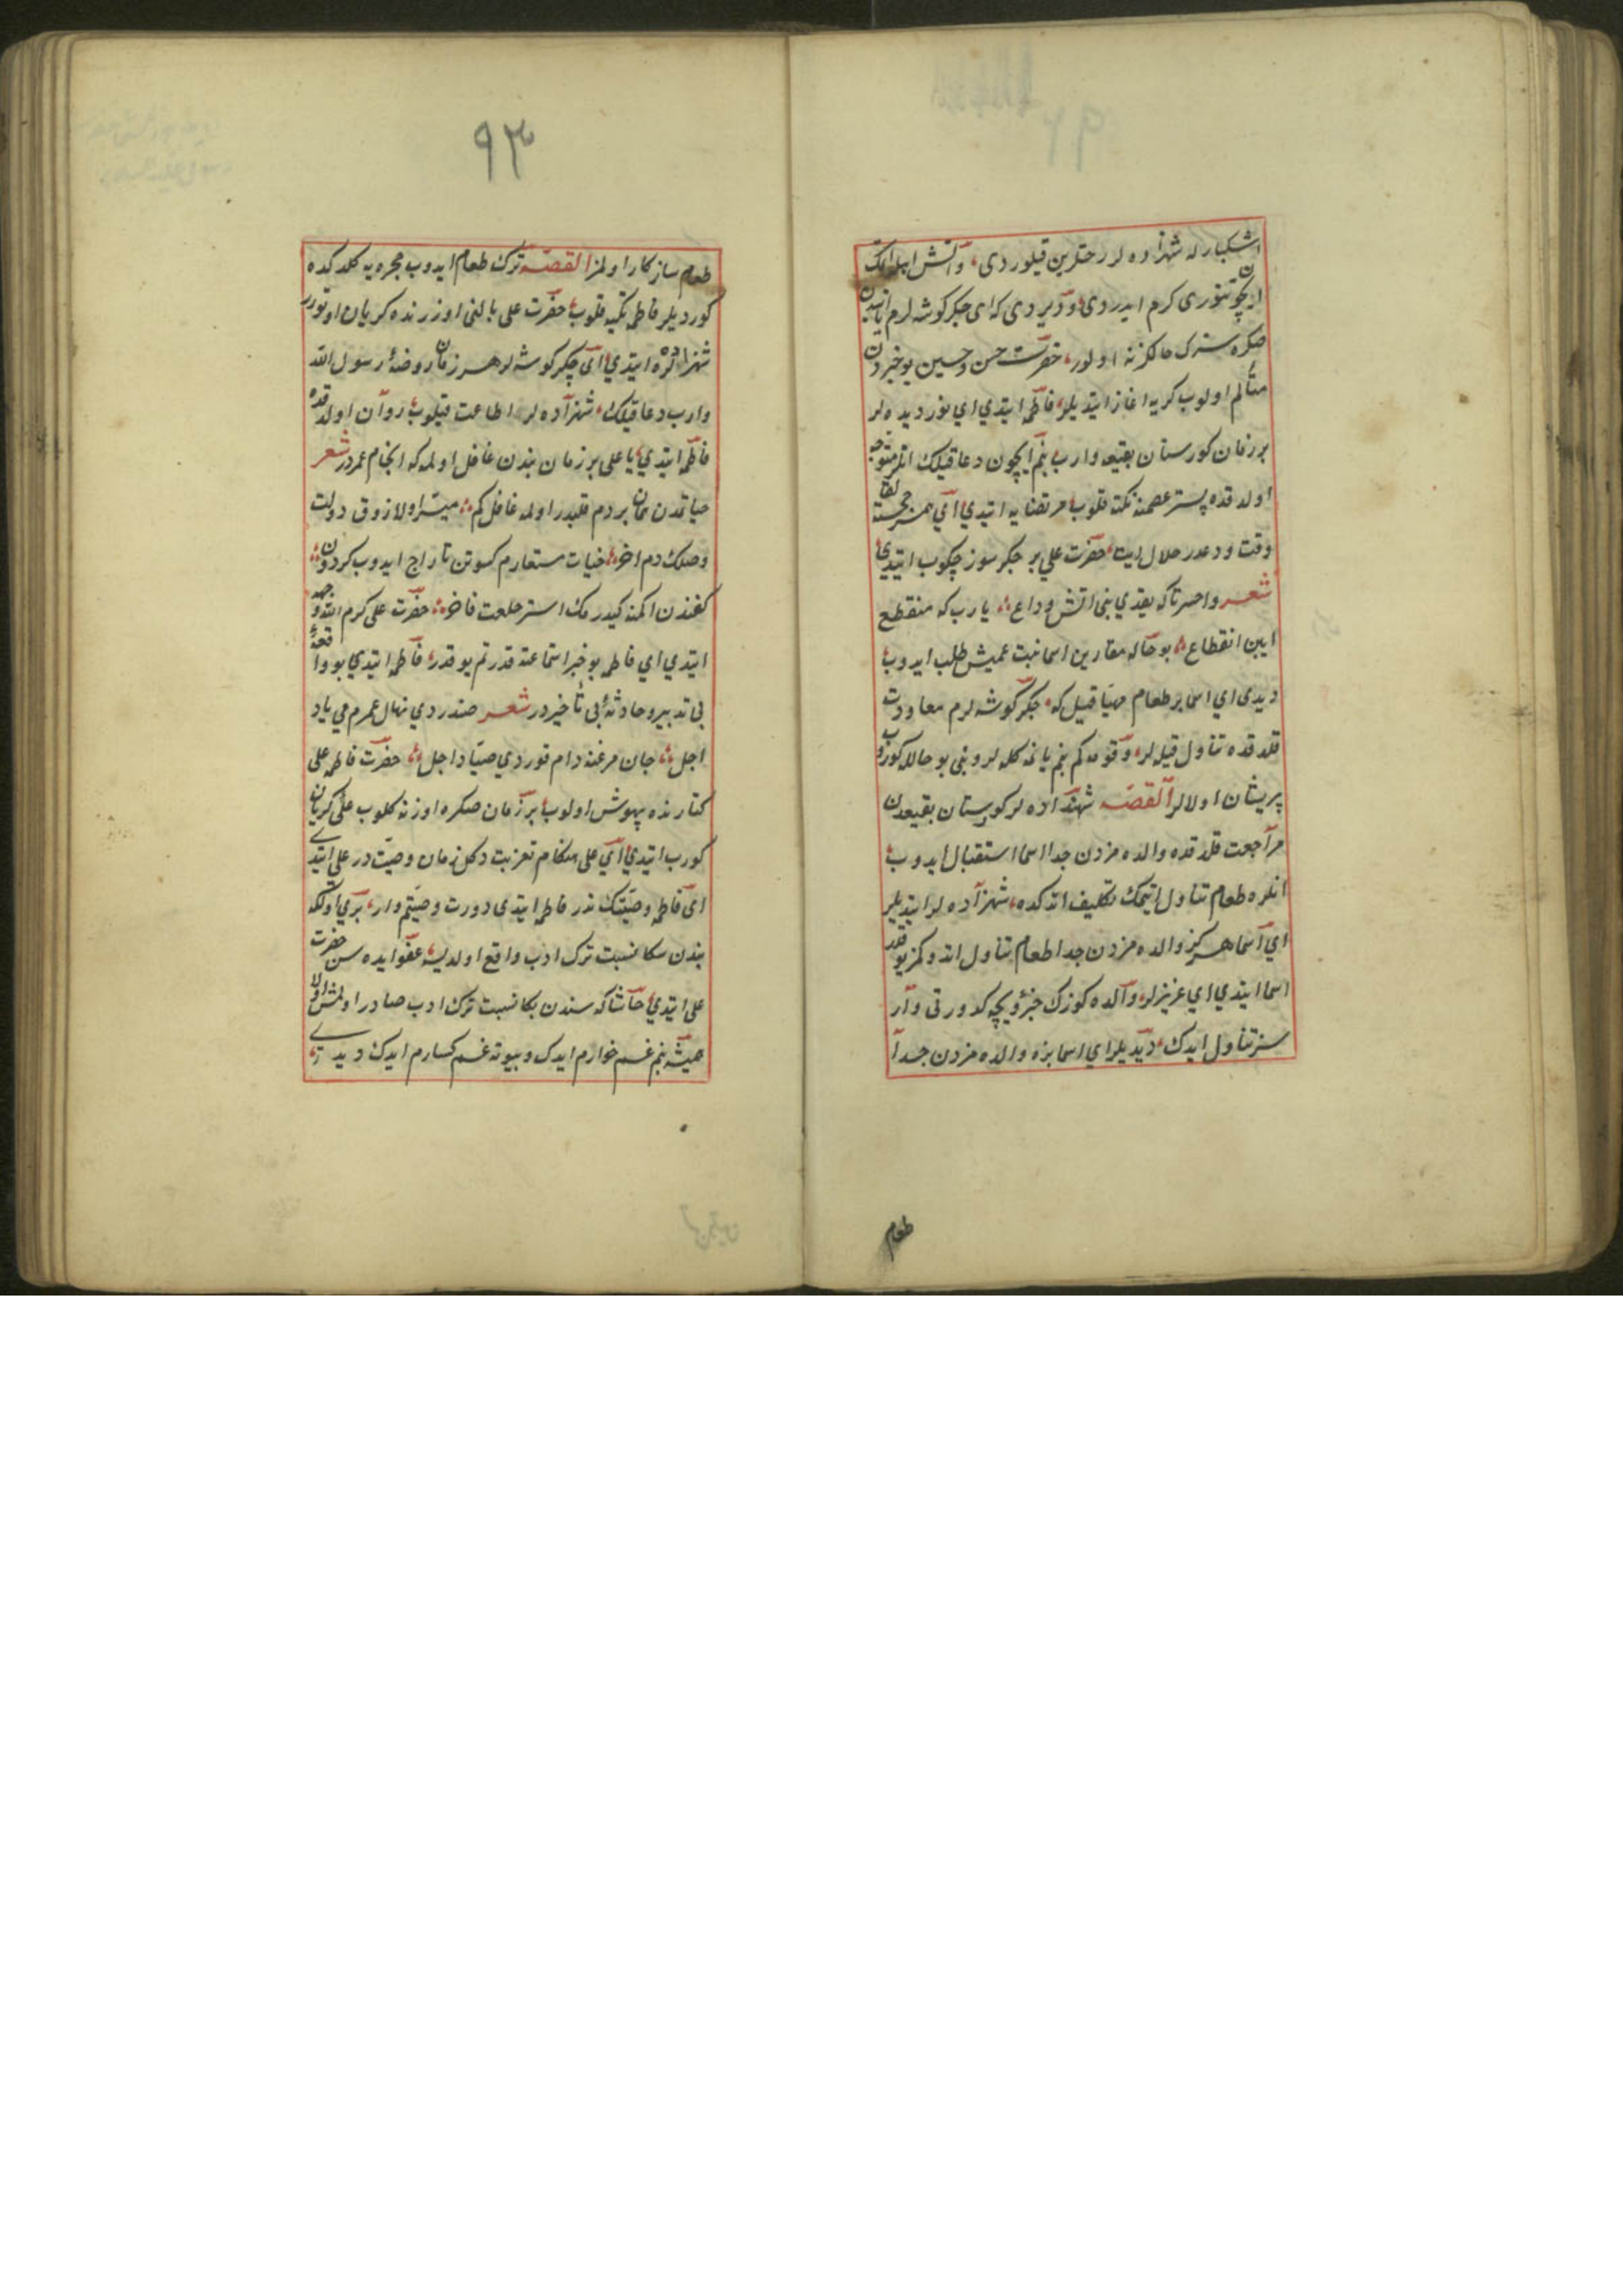 اشکبارله شهزاده لر رختلرین قیلوردی، و آتش ایله اتمک
ایچون تنوری کرم ایدردی و دیردی که ای جکر کوشه لرم بندن
صکره سزک حالکز نه اولور، حضرت حسن و حسین بو خبردن
متألم اولوب کریه اغاز ایتدیلر، فاطمه ایتدی ای نور دیده لر
بر زمان کورستان بقیعه وارب بنم ایچون دعا قیلک انلر متوجه
اولدقده پستر عصمته تکیه قلوب مرتضایه ایتدی ای همسر خجسته لقا
وقت وداعدر حلال ایت، حضرت علی بر جکر سوز چکوب ایتدی
شعر واحسرتا که یقدی بنی اتش وداع یا رب که منقطع
ایین انقطاع بو حاله مقارن اسما بنت عمیش طلب ایدوب
دیدی ای اسما بر طعام مهیا قیل که جکر کوشه لرم معاودت
قلدقده تناول قیله لر، و قومه کم بنم یانمه کله لر و بنی بو حالله کورب
پریشان اولالر القصه شهزاده لر کورستان بقیعدن
مراجعت قلدقده والده مزدن جدا اسما استقبال ایدوب
انلره طعام تناول ایتمک تکلیف اتدکده، شهزاده لر ایتدیلر
ای اسما هرکز والده مزدن جدا طعام تناول اتدوکمز یوقدر
اسما ایتدی ای عزیزلر، والده کوزک جزویجه کدورتی وار
سز تناول ایدک، دیدیلر ای اسما بزه والده مزدن جدا
طعام
٩٣
طعام سازکار اولمز القصه ترک طعام ایدوب حجره یه کلدکده
کوردیلر فاطمه تکیه قلوب حضرت علی بالنی اوزرنده کریان اوتورر
شهزادلره ایتدی ای جکر کوشه لر هر زمان روضهٔ رسول الله
وارب دعا قیلک، شهزاده لر اطاعت قیلوب روان اولدقده
فاطمه ایتدی یا علی بر زمان بندن غافل اولمه که انجام عمردر شعر
حیاتمدن همان بردم قلبدر اولمه غافل کم میسر اولا ذوق دولت
وصلک دم اخر حیات مستعارم کسوتن تاراج ایدوب کردون
کفندن اکنمه کیدرمک استر خلعت فاخر حضرت علی کرم الله وجهه
ایتدی ای فاطمه بو خبر استماعنه قدرتم یوقدر فاطمه ایتدی بو واقعهٔ
بی تدبیر و حادثهٔ بی تأخیردر شعر صندردی نهال عمرمی باد
اجل جان مرغنه دام قوردی صیاد اجل حضرت فاطمه علی
کنارنده بیهوش اولوب بر زمان صکره اوزنه کلوب علی کریان
کورب ایتدی ای علی هنکام تعزیت دکل زمان وصیت در علی ایتدی
ای فاطمه وصیتک ندر فاطمه ایتدی دورت وصیتم وار، بری اولکه
بندن سکا نسبت ترک ادب واقع اولدیسه عفو ایده سن حضرت
علی ایتدی حاشا که سندن بکا نسبت ترک ادب صادر اولمش اولا
همیشه بنم غمخوارم ایدک و پیوته غمکسارم ایدک دیدی